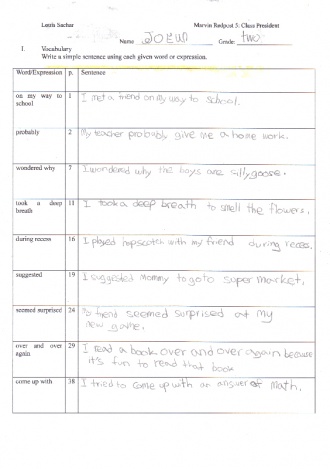 Louis Sachar Marvin Redpost 5: Class President
Name JOEUN Grade: two
I. Vocabulary
Write a simple sentence using each given word or expression.
Word/Expression p. Sentence
on my way to school 1 I met a friend on my way to school.
probably 2 My teacher probably give me a home work.
wondered why 7 I wondered why the boys are silly goose.
took a deep breath 11 I took a deep breath to smell the flowers.
during recess 16 I played hopscotch with my friend during recess.
suggested 19 I suggested Mommy to go to super market.
seemed surprised 24 friend seemed surprised at my
new game.
over and over again 29 I read a book over and over again because
it's fun to read that book
come up with 38 I tried to come up with an answer of math.